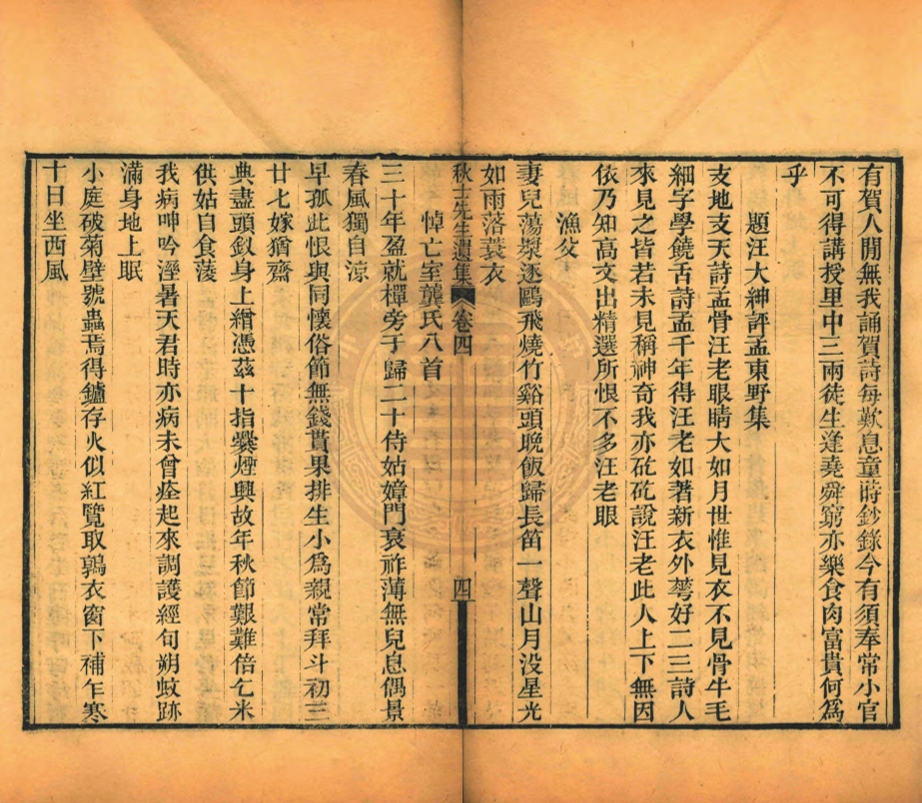 有賀人閒無我誦賀詩每歎息童蒔鈔錄今有須奉常小官
不可得講授里中三兩徒生逢堯舜窮亦樂食肉富貴何爲
乎
題汪大紳評孟東野集
支地支天詩孟骨汪老眼睛大如月世惟見衣不見骨牛毛
細字學饒舌詩孟千年得汪老如著新衣外蕚好二三詩人
來見之皆若未見稱神奇我亦矻矻說汪老此人上下無因
依乃知高文出精選所恨不多汪老眼
漁父
妻兒蕩槳逐鷗飛燒竹谿頭晚飯歸長笛一聲山月没星光
如雨落蓑衣
秋士先生遺集 卷四 四
悼亡室龔氏八首
三十年盈就槥旁于歸二十侍姑嫜門衰祚薄無兒息偶景
春風獨自涼
早孤此恨與同懷俗節無錢貰果排生小爲親常拜斗初三
廿七嫁猶齋
典盡頭釵身上繒憑茲十指爨煙興故年秋節艱難倍乞米
供姑自食蔆
我病呻吟溼暑天君時亦病未曾痊起來調護經旬朔蚊跡
滿身地上眠
小庭破菊壁號蟲焉得鑪存火似紅覽取鶉衣窗下補乍寒
十日坐西風